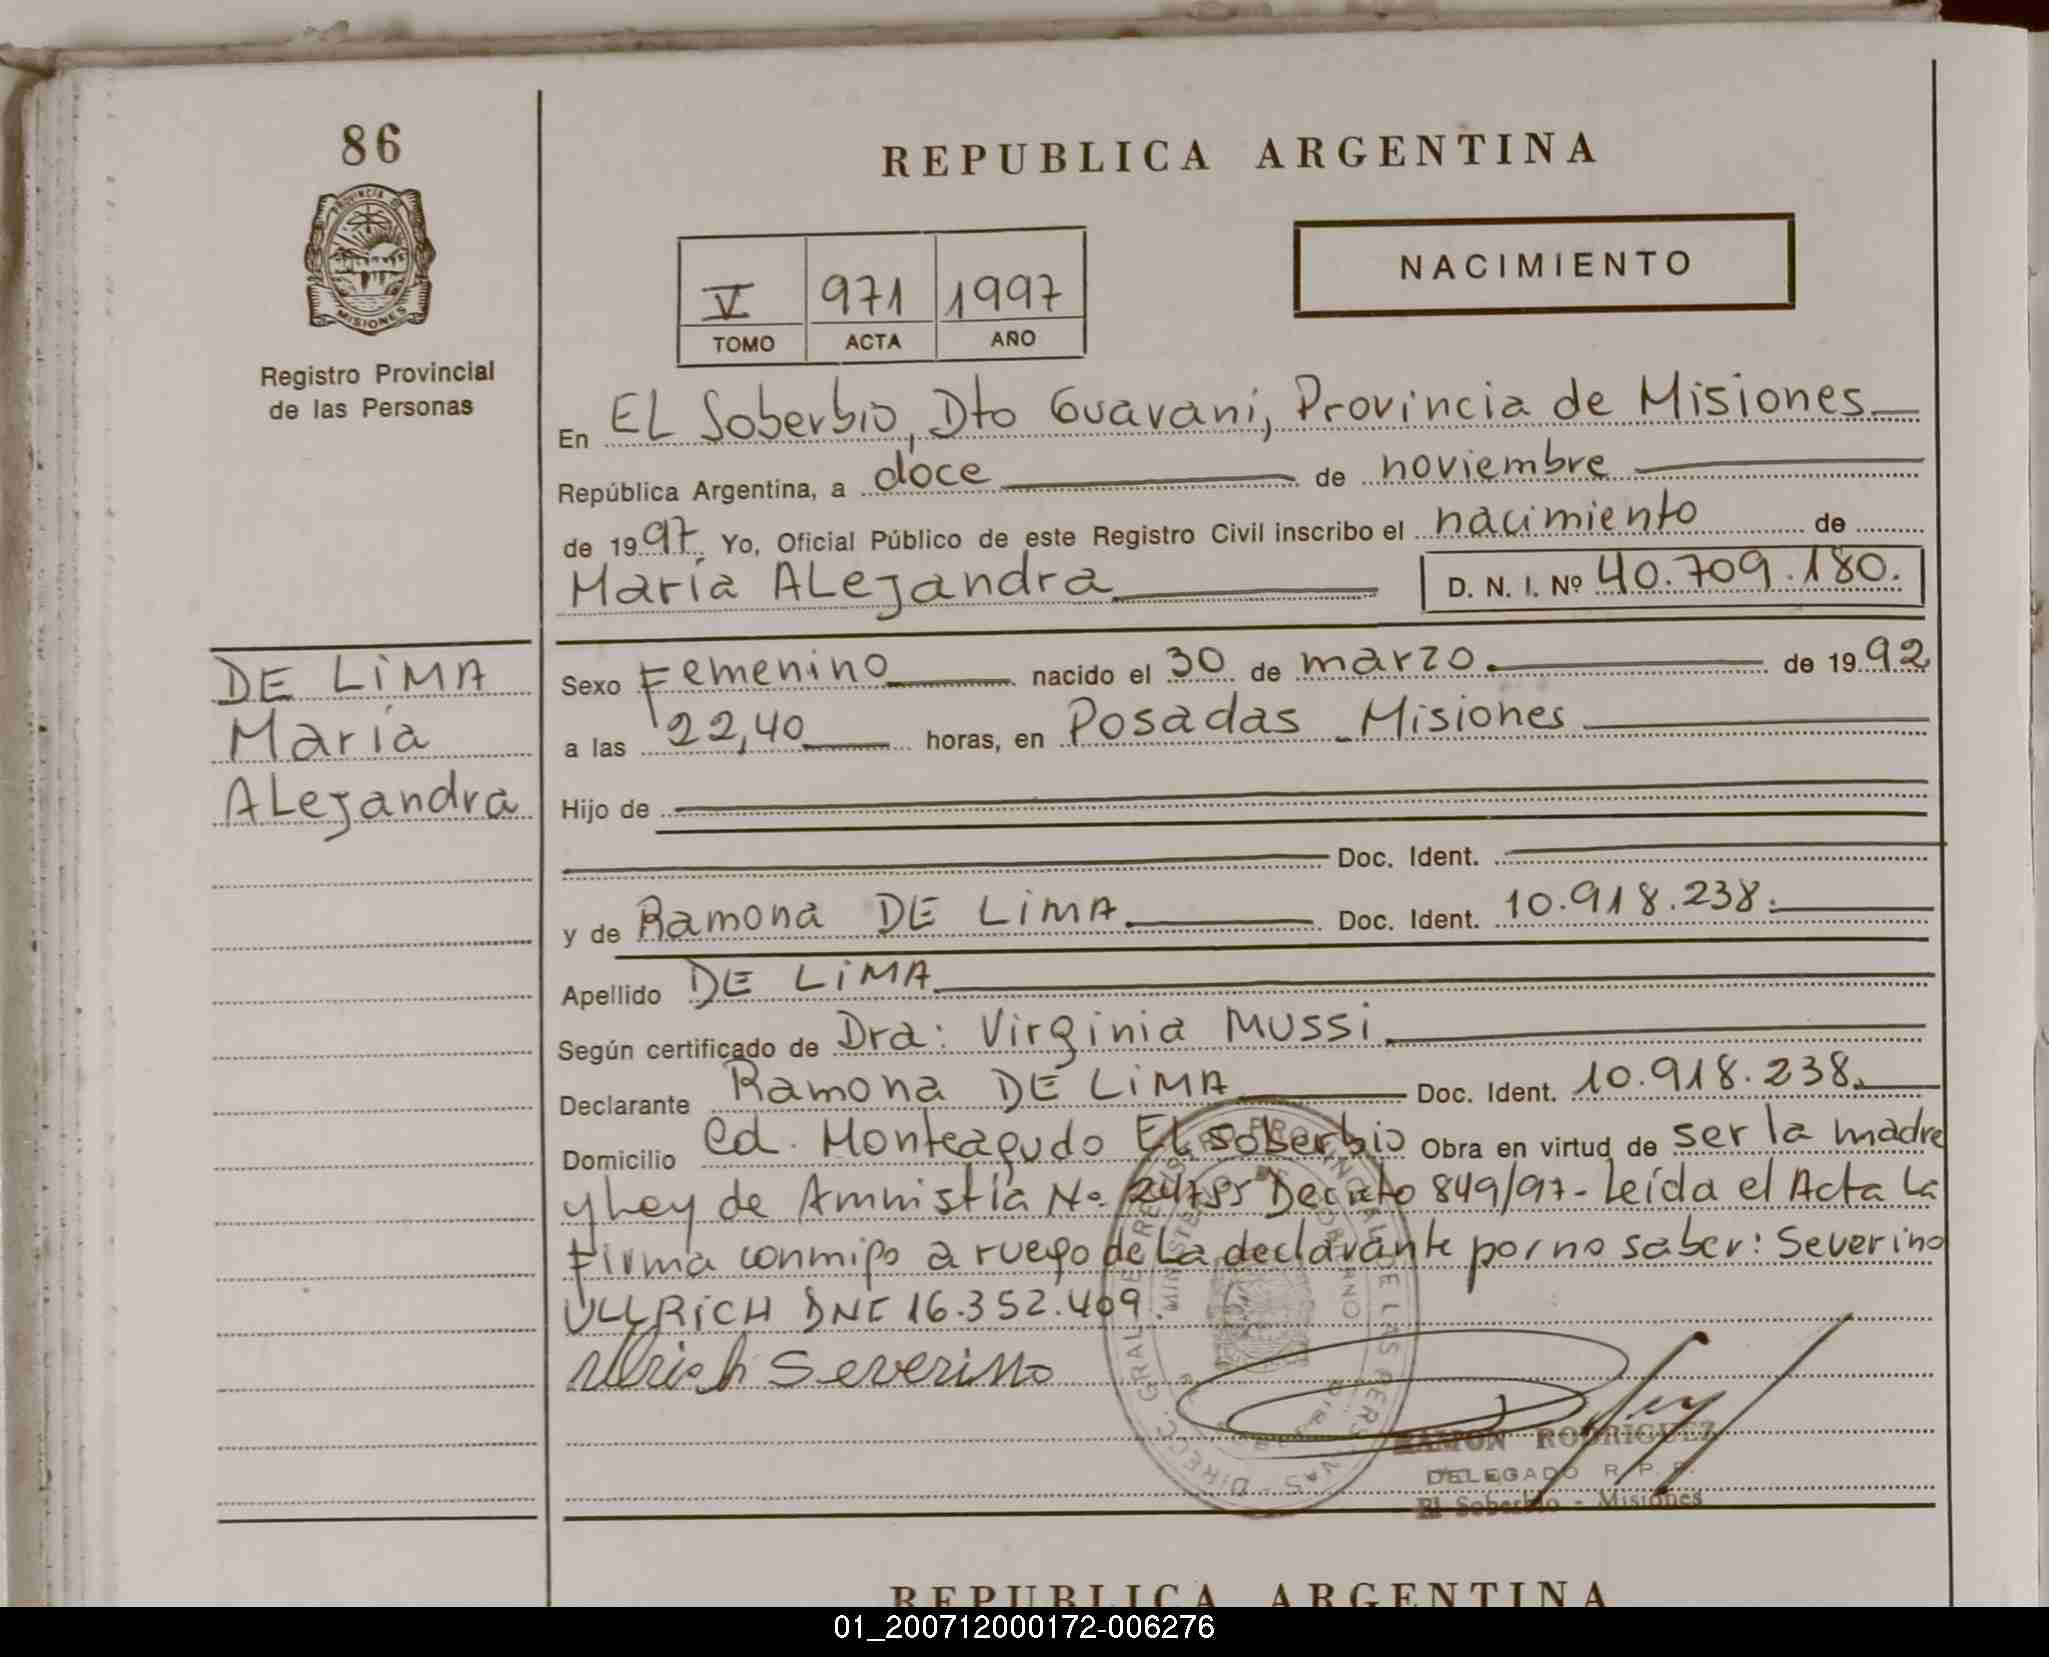 86
PROVINCIA D
MISIONES
Registro Provincial
de las Personas
REPUBLICA ARGENTINA
V 971 1997
TOMO ACTA AÑO
NACIMIENTO
En EL Soberbio, Dto Guaraní, Provincia de Misiones
República Argentina, a doce de noviembre
de 1997 Yo, Oficial Público de este Registro Civil inscribo el nacimiento de
María ALejandra D. N. I. Nº 40.709.180.
DE LiMA
María
ALejandra
Sexo Femenino nacido el 30 de marzo de 1992
a las 22,40 horas, en Posadas - Misiones
Hijo de
Doc. Ident.
y de Ramona DE LiMA Doc. Ident. 10.918.238.
Apellido DE LiMA
Según certificado de Dra: Virginia MUSSi
Declarante Ramona DE LiMA Doc. Ident. 10.918.238.
Domicilio Cd. Monteagudo EL Soberbio Obra en virtud de ser la madre
y Ley de Amnistía Nº 24755 Decreto 849/97 - Leída el Acta La
Firma conmigo a ruego de La declarante por no saber: Severino
ULLRiCH DNI 16.352.409.
Ullrich Severino
RAMON RODRIGUEZ
DELEGADO R. P. P.
El Soberbio - Misiones
REPUBLICA ARGENTINA
01_200712000172-006276